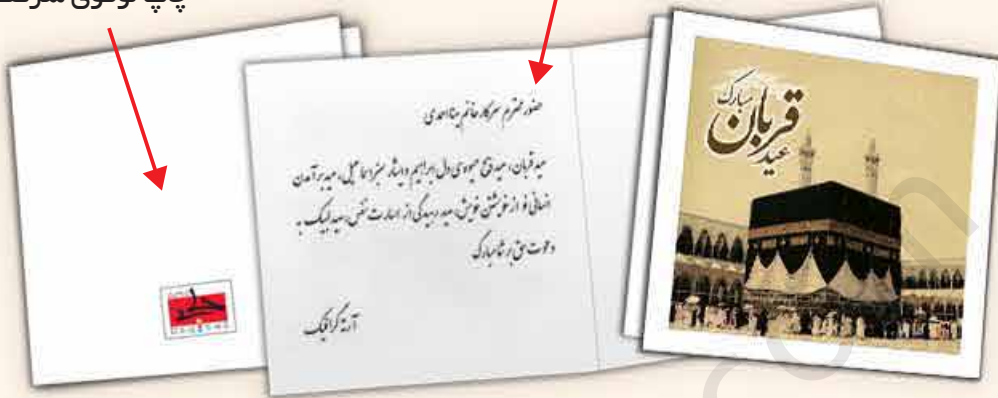 چاپ لوگوی
حضور محترم سرکار خانم بینا احمدی
عید قربان، عید ذبح میوه‌ی دل ابراهیم و ایثار سبز اسماعیل، عید برآمدن
انسانی نو از خویشتن خویش، عید رهیدگی از اسارت نفس، عید لبیک به
دعوت حق بر شما مبارک
آرته گرافیک
عید قربان مبارک